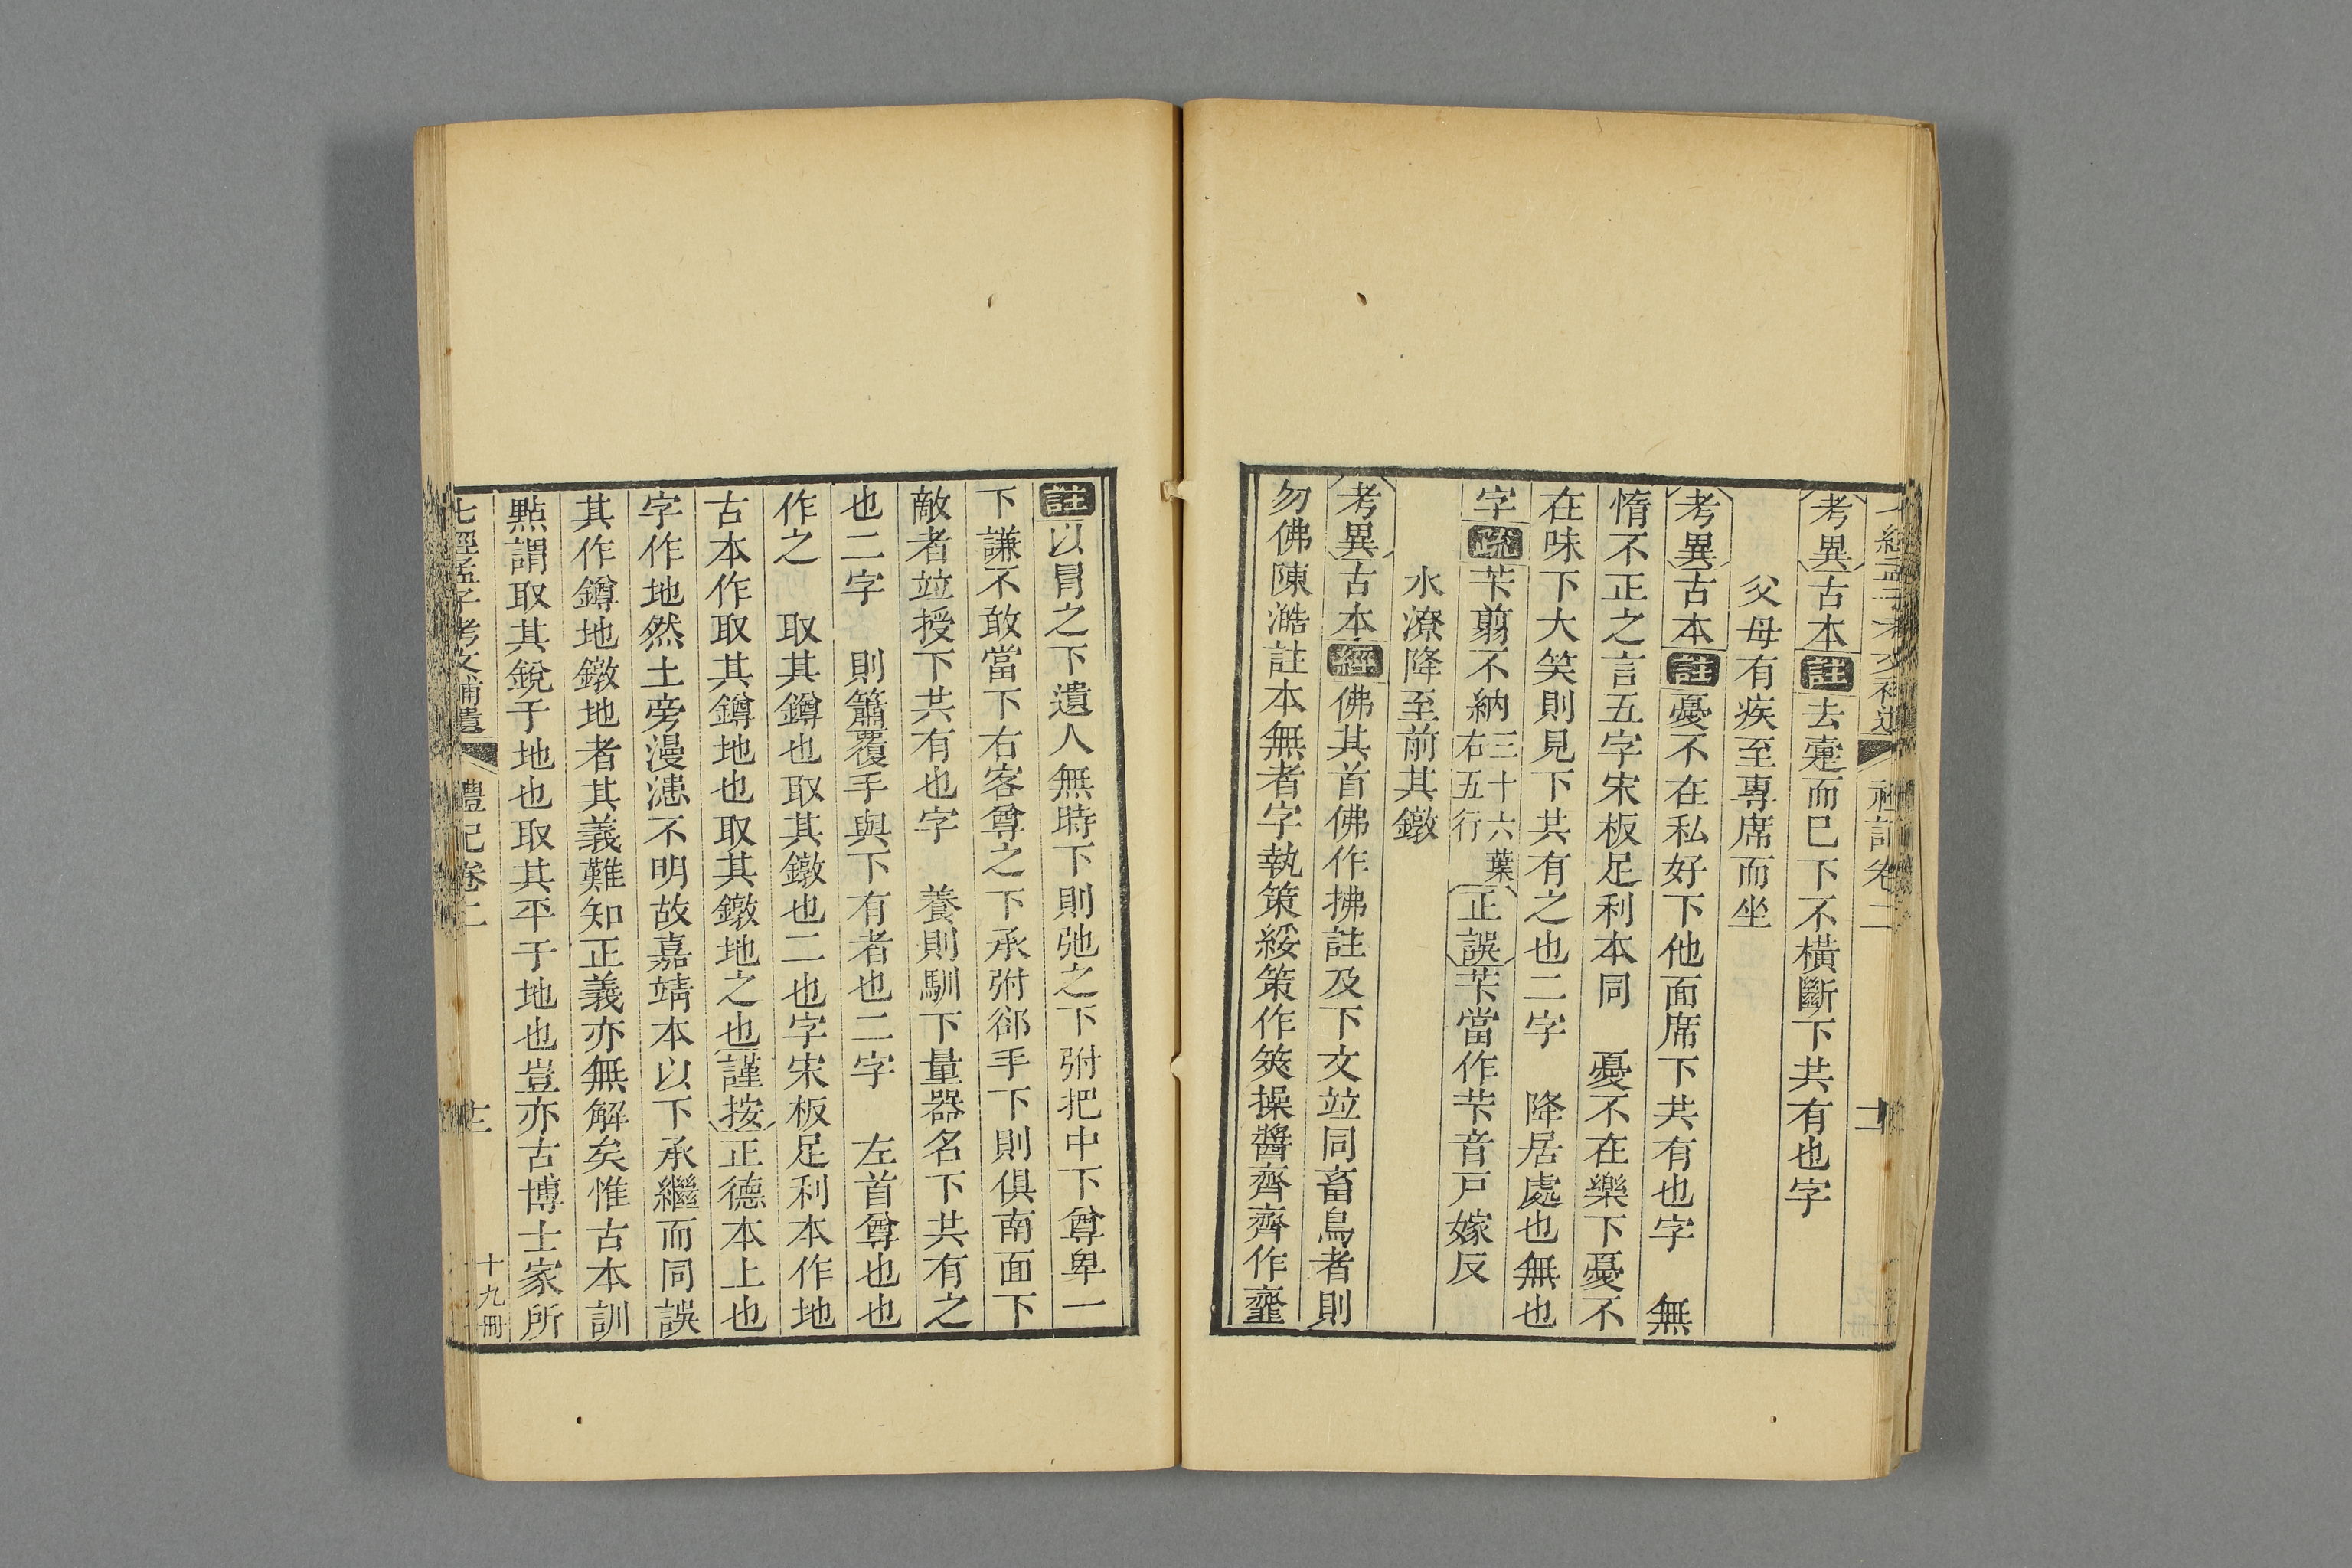 考異古本註去疐而巳下不橫斷下共有也字
父母有疾至專席而坐
考異古本註憂不在私好下他面席下共有也字 無
惰不正之言五字宋板足利本同 憂不在樂下憂不
在味下大笑則見下共有之也二字 降居處也無也
字疏芐翦不納三十六葉右五行正誤芐當作芐音戸嫁反
水潦降至前其鐓
考異古本經佛其首佛作拂註及下文竝同畜鳥者則
勿佛陳澔註本無者字執策綏策作筴操醬齊齊作齏
註以冐之下遺人無時下則弛之下弣把中下尊卑一
下謙不敢當下右客尊之下承弣郤手下則俱南面下
敵者竝授下共有也字 養則馴下量器名下共有之
也二字 則簫覆手與下有者也二字 左首尊也也
作之 取其鐏也取其鐓也二也字宋板足利本作地
古本作取其鐏地也取其鐓地之也謹按正德本上也
字作地然土旁漫漶不明故嘉靖本以下承繼而同誤
其作鐏地鐓地者其義難知正義亦無解矣惟古本訓
點謂取其銳于地也取其平于地也豈亦古博士家所
七經孟子考文補遺 禮記卷二 十九冊